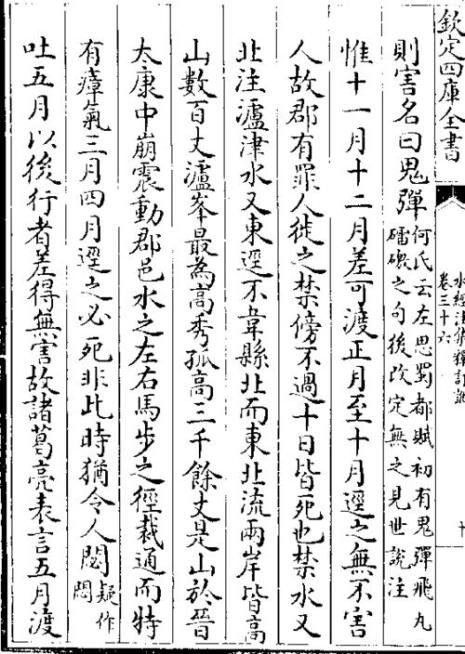 欽定四庫全書
水經注集釋訂訛
卷三十六
則害名曰鬼彈何氏云左思蜀都賦初有鬼彈飛丸
礌礉之句後改定無之見世說注
惟十一月十二月差可渡正月至十月逕之無不害
人故郡有罪人徙之禁傍不過十日皆死也禁水又
北注瀘津水又東逕不韋縣北而東北流兩岸皆高
山數百丈瀘峯最為高秀孤高三千餘丈是山於晉
太康中崩震動郡邑水之左右馬步之徑裁通而特
有瘴氣三月四月逕之必死非此時猶令人閟疑作
悶
吐五月以後行者差得無害故諸葛亮表言五月渡